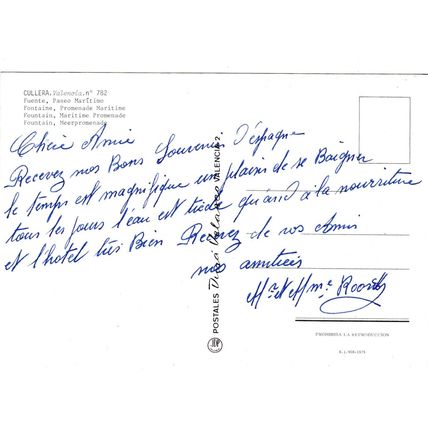 CULLERA. Valencia. nº 782
Fuente, Paseo Marítimo
Fontaine, Promenade Maritime
Fountain, Maritime Promenade
Fountain, Meerpromenade
Chère Amie
Recevez nos Bons Souvenirs d'espagne
le temps est magnifique un plaisir de se Baigner
tous les jours l'eau est tiède quand à la nourriture
et l'hotel très Bien Recevez de vos Amis
nos amitiés
Mr et Mme
POSTALES VALENCIA-2.
JDP
PROHIBIDA LA REPRODUCCION